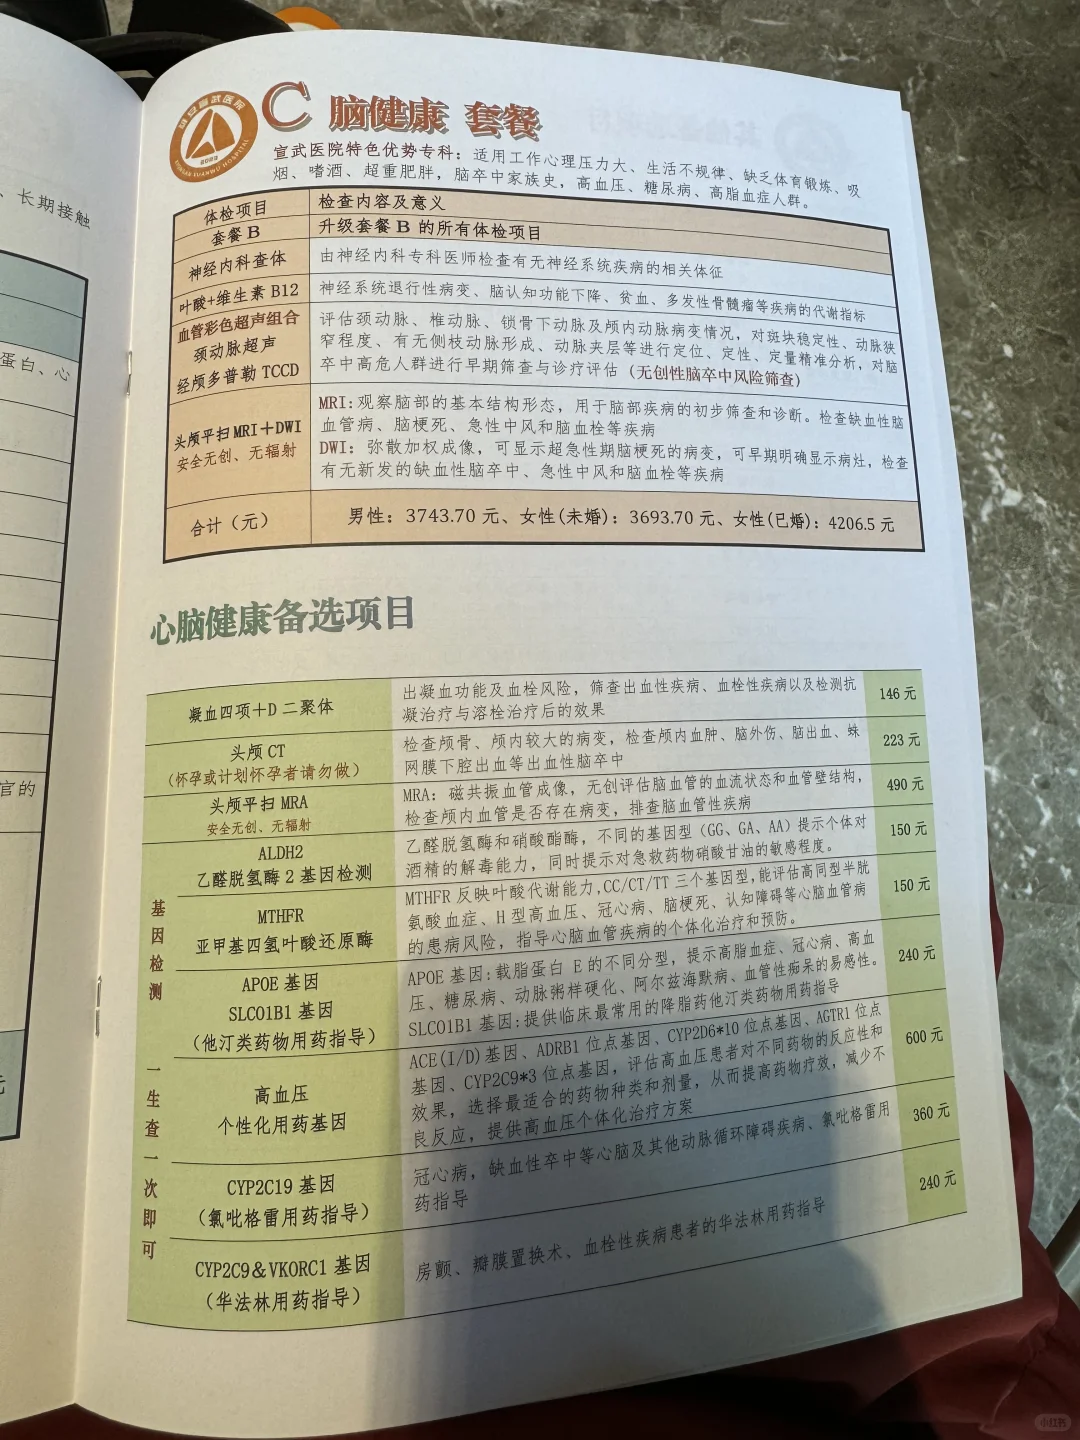 、长期接触
蛋白、心
官的
元
雄安宣武医院
2022
XIONGAN XUANWU HOSPITAL
C 脑健康 套餐
宣武医院特色优势专科：适用工作心理压力大、生活不规律、缺乏体育锻炼、吸
烟、嗜酒、超重肥胖，脑卒中家族史，高血压、糖尿病、高脂血症人群。
体检项目
检查内容及意义
套餐 B
升级套餐 B 的所有体检项目
神经内科查体
由神经内科专科医师检查有无神经系统疾病的相关体征
叶酸+维生素 B12
神经系统退行性病变、脑认知功能下降、贫血、多发性骨髓瘤等疾病的代谢指标
血管彩色超声组合
颈动脉超声
经颅多普勒 TCCD
评估颈动脉、椎动脉、锁骨下动脉及颅内动脉病变情况，对斑块稳定性、动脉狭
窄程度、有无侧枝动脉形成、动脉夹层等进行定位、定性、定量精准分析，对脑
卒中高危人群进行早期筛查与诊疗评估（无创性脑卒中风险筛查）
头颅平扫 MRI＋DWI
安全无创、无辐射
MRI：观察脑部的基本结构形态，用于脑部疾病的初步筛查和诊断。检查缺血性脑
血管病、脑梗死、急性中风和脑血栓等疾病
DWI：弥散加权成像，可显示超急性期脑梗死的病变，可早期明确显示病灶，检查
有无新发的缺血性脑卒中、急性中风和脑血栓等疾病
合计（元）
男性：3743.70 元、女性(未婚)：3693.70 元、女性(已婚)：4206.5 元
心脑健康备选项目
凝血四项＋D 二聚体
出凝血功能及血栓风险，筛查出血性疾病、血栓性疾病以及检测抗
凝治疗与溶栓治疗后的效果
146 元
头颅 CT
（怀孕或计划怀孕者请勿做）
检查颅骨、颅内较大的病变，检查颅内血肿、脑外伤、脑出血、蛛
网膜下腔出血等出血性脑卒中
223 元
头颅平扫 MRA
安全无创、无辐射
MRA：磁共振血管成像，无创评估脑血管的血流状态和血管壁结构，
检查颅内血管是否存在病变，排查脑血管性疾病
490 元
基因检测
一生查一次即可
ALDH2
乙醛脱氢酶 2 基因检测
乙醛脱氢酶和硝酸酯酶，不同的基因型（GG、GA、AA）提示个体对
酒精的解毒能力，同时提示对急救药物硝酸甘油的敏感程度。
150 元
MTHFR
亚甲基四氢叶酸还原酶
MTHFR 反映叶酸代谢能力,CC/CT/TT 三个基因型,能评估高同型半胱
氨酸血症、H 型高血压、冠心病、脑梗死、认知障碍等心脑血管病
的患病风险，指导心脑血管疾病的个体化治疗和预防。
150 元
APOE 基因
SLCO1B1 基因
（他汀类药物用药指导）
APOE 基因：载脂蛋白 E 的不同分型，提示高脂血症、冠心病、高血
压、糖尿病、动脉粥样硬化、阿尔兹海默病、血管性痴呆的易感性。
SLCO1B1 基因：提供临床最常用的降脂药他汀类药物用药指导
240 元
高血压
个性化用药基因
ACE(I/D)基因、ADRB1 位点基因、CYP2D6*10 位点基因、AGTR1 位点
基因、CYP2C9*3 位点基因，评估高血压患者对不同药物的反应性和
效果，选择最适合的药物种类和剂量，从而提高药物疗效，减少不
良反应，提供高血压个体化治疗方案
600 元
CYP2C19 基因
（氯吡格雷用药指导）
冠心病，缺血性卒中等心脑及其他动脉循环障碍疾病、氯吡格雷用
药指导
360 元
CYP2C9＆VKORC1 基因
（华法林用药指导）
房颤、瓣膜置换术、血栓性疾病患者的华法林用药指导
240 元
小红书